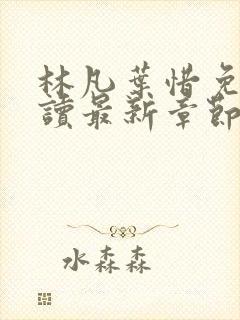 林凡葉惜免
讀最新章節
水森森